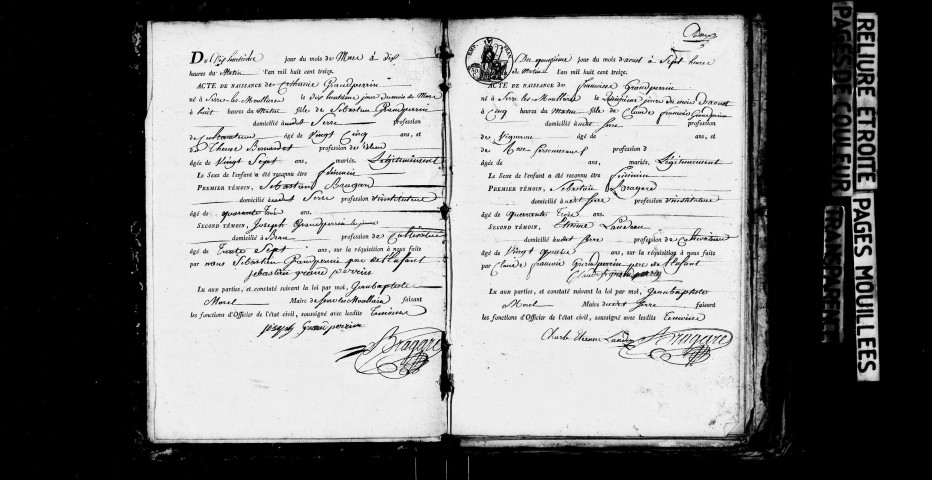 Du Dix huitieme jour du mois de Mars à dix
heures du Matin l'an mil huit cent treize.
ACTE DE NAISSANCE de Catherine Grandperrin
né à Serre les Moullieres le dix huitieme jour du mois de Mars
à huit heures du Matin fille de Sébastien Grandperrin
domicilié audit Serre profession
de Cultivateur âgé de vingt Cinq ans, et
de Therese Bernardet profession de
âgée de vingt Sept ans, mariés. Légitimement
Le Sexe de l'enfant a été reconnu être féminin
PREMIER TÉMOIN, Sebastien Bragard
domicilié audit Serre profession d'instituteur
âgé de quarante trois ans.
SECOND TÉMOIN, Joseph Grandperrin le jeune
domicilié à profession de Cultivateur
âgé de Trente Sept ans, sur la réquisition à nous faite
par nous Sébastien Grandperrin pere de l'enfant
sebastien grand perrin
Lu aux parties, et constaté suivant la loi par moi, Jean baptiste
Morel Maire de Serre les Moullieres faisant
les fonctions d'Officier de l'état civil, soussigné avec lesdits Temoins
joseph Grand perrin
Bragare
Du quinzieme jour du mois d'aoust à Sept heures
du Matin l'an mil huit cent treize.
ACTE DE NAISSANCE de francoise Grandperrin
né à Serre les Moullieres le quinzieme jour du mois D'aoust
à Cinq heures du Matin fille de Claude francois Grandperrin
domicilié audit Serre profession
de Vigneron âgé de ans, et
de Rose profession d
âgée de ans, mariés. Légitimement
Le Sexe de l'enfant a été reconnu être féminin
PREMIER TÉMOIN, Sebastien Bragard
domicilié audit Serre profession d'instituteur
âgé de quarante trois ans.
SECOND TÉMOIN, Etienne Landry
domicilié audit Serre profession de Cultivateur
âgé de Vingt quatre ans, sur la réquisition à nous faite
par Claude francois Grandperrin pere de l'enfant
Lu aux parties, et constaté suivant la loi par moi, Jean baptiste
Morel Maire dudit Serre faisant
les fonctions d'Officier de l'état civil, soussigné avec lesdits Temoins
Charle Etienne Landry Bragare
RELIURE ETROITE PAGES MOUILLEES
PAGES DE COULEUR TRANSPARENCE